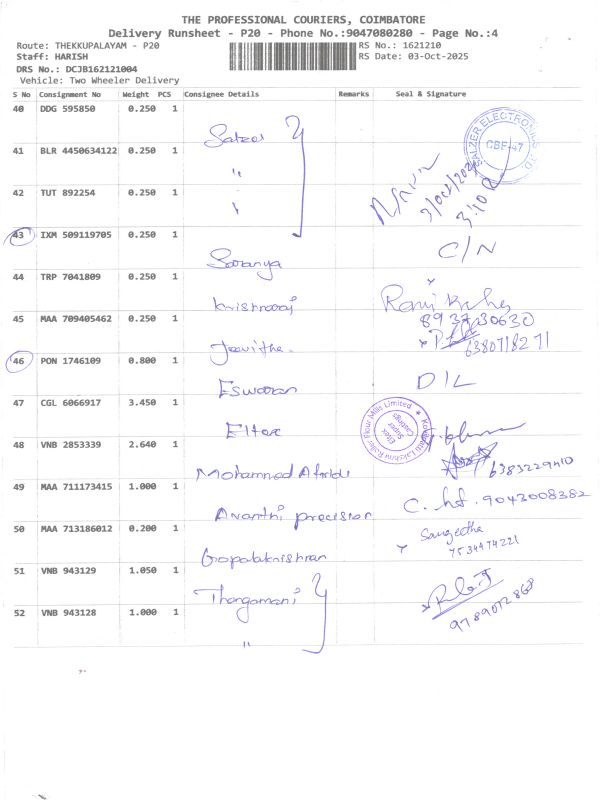 THE PROFESSIONAL COURIERS, COIMBATORE
Delivery Runsheet - P20 - Phone No.:9047080280 - Page No.:4
Route: THEKKUPALAYAM - P20 RS No.: 1621210
Staff: HARISH RS Date: 03-Oct-2025
DRS No.: DCJB162121004
Vehicle: Two Wheeler Delivery
S No Consignment No Weight PCS Consignee Details Remarks Seal & Signature
40 DDG 595850 0.250 1
Salzer
SALZER ELECTRONICS LTD.
CBE-47
41 BLR 4450634122 0.250 1
"
42 TUT 892254 0.250 1
"
3:10
43 IXM 509119705 0.250 1
Saranya C/N
44 TRP 7041809 0.250 1
Krishnaraj
45 MAA 709405462 0.250 1
8937230630
Jeevitha 6380718271
46 PON 1746109 0.800 1
Eswaran D/L
47 CGL 6066917 3.450 1
Eltex
Lakshmi Roller Flour Mills Limited
Eltex Super Castings
48 VNB 2853339 2.640 1
Mohammed Afridi 6383229410
49 MAA 711173415 1.000 1
Avanthi precision C. 9043008382
50 MAA 713186012 0.200 1
Gopalakrishnan Sangeetha
7534974221
51 VNB 943129 1.050 1
Thangamani
52 VNB 943128 1.000 1
9789072868
"